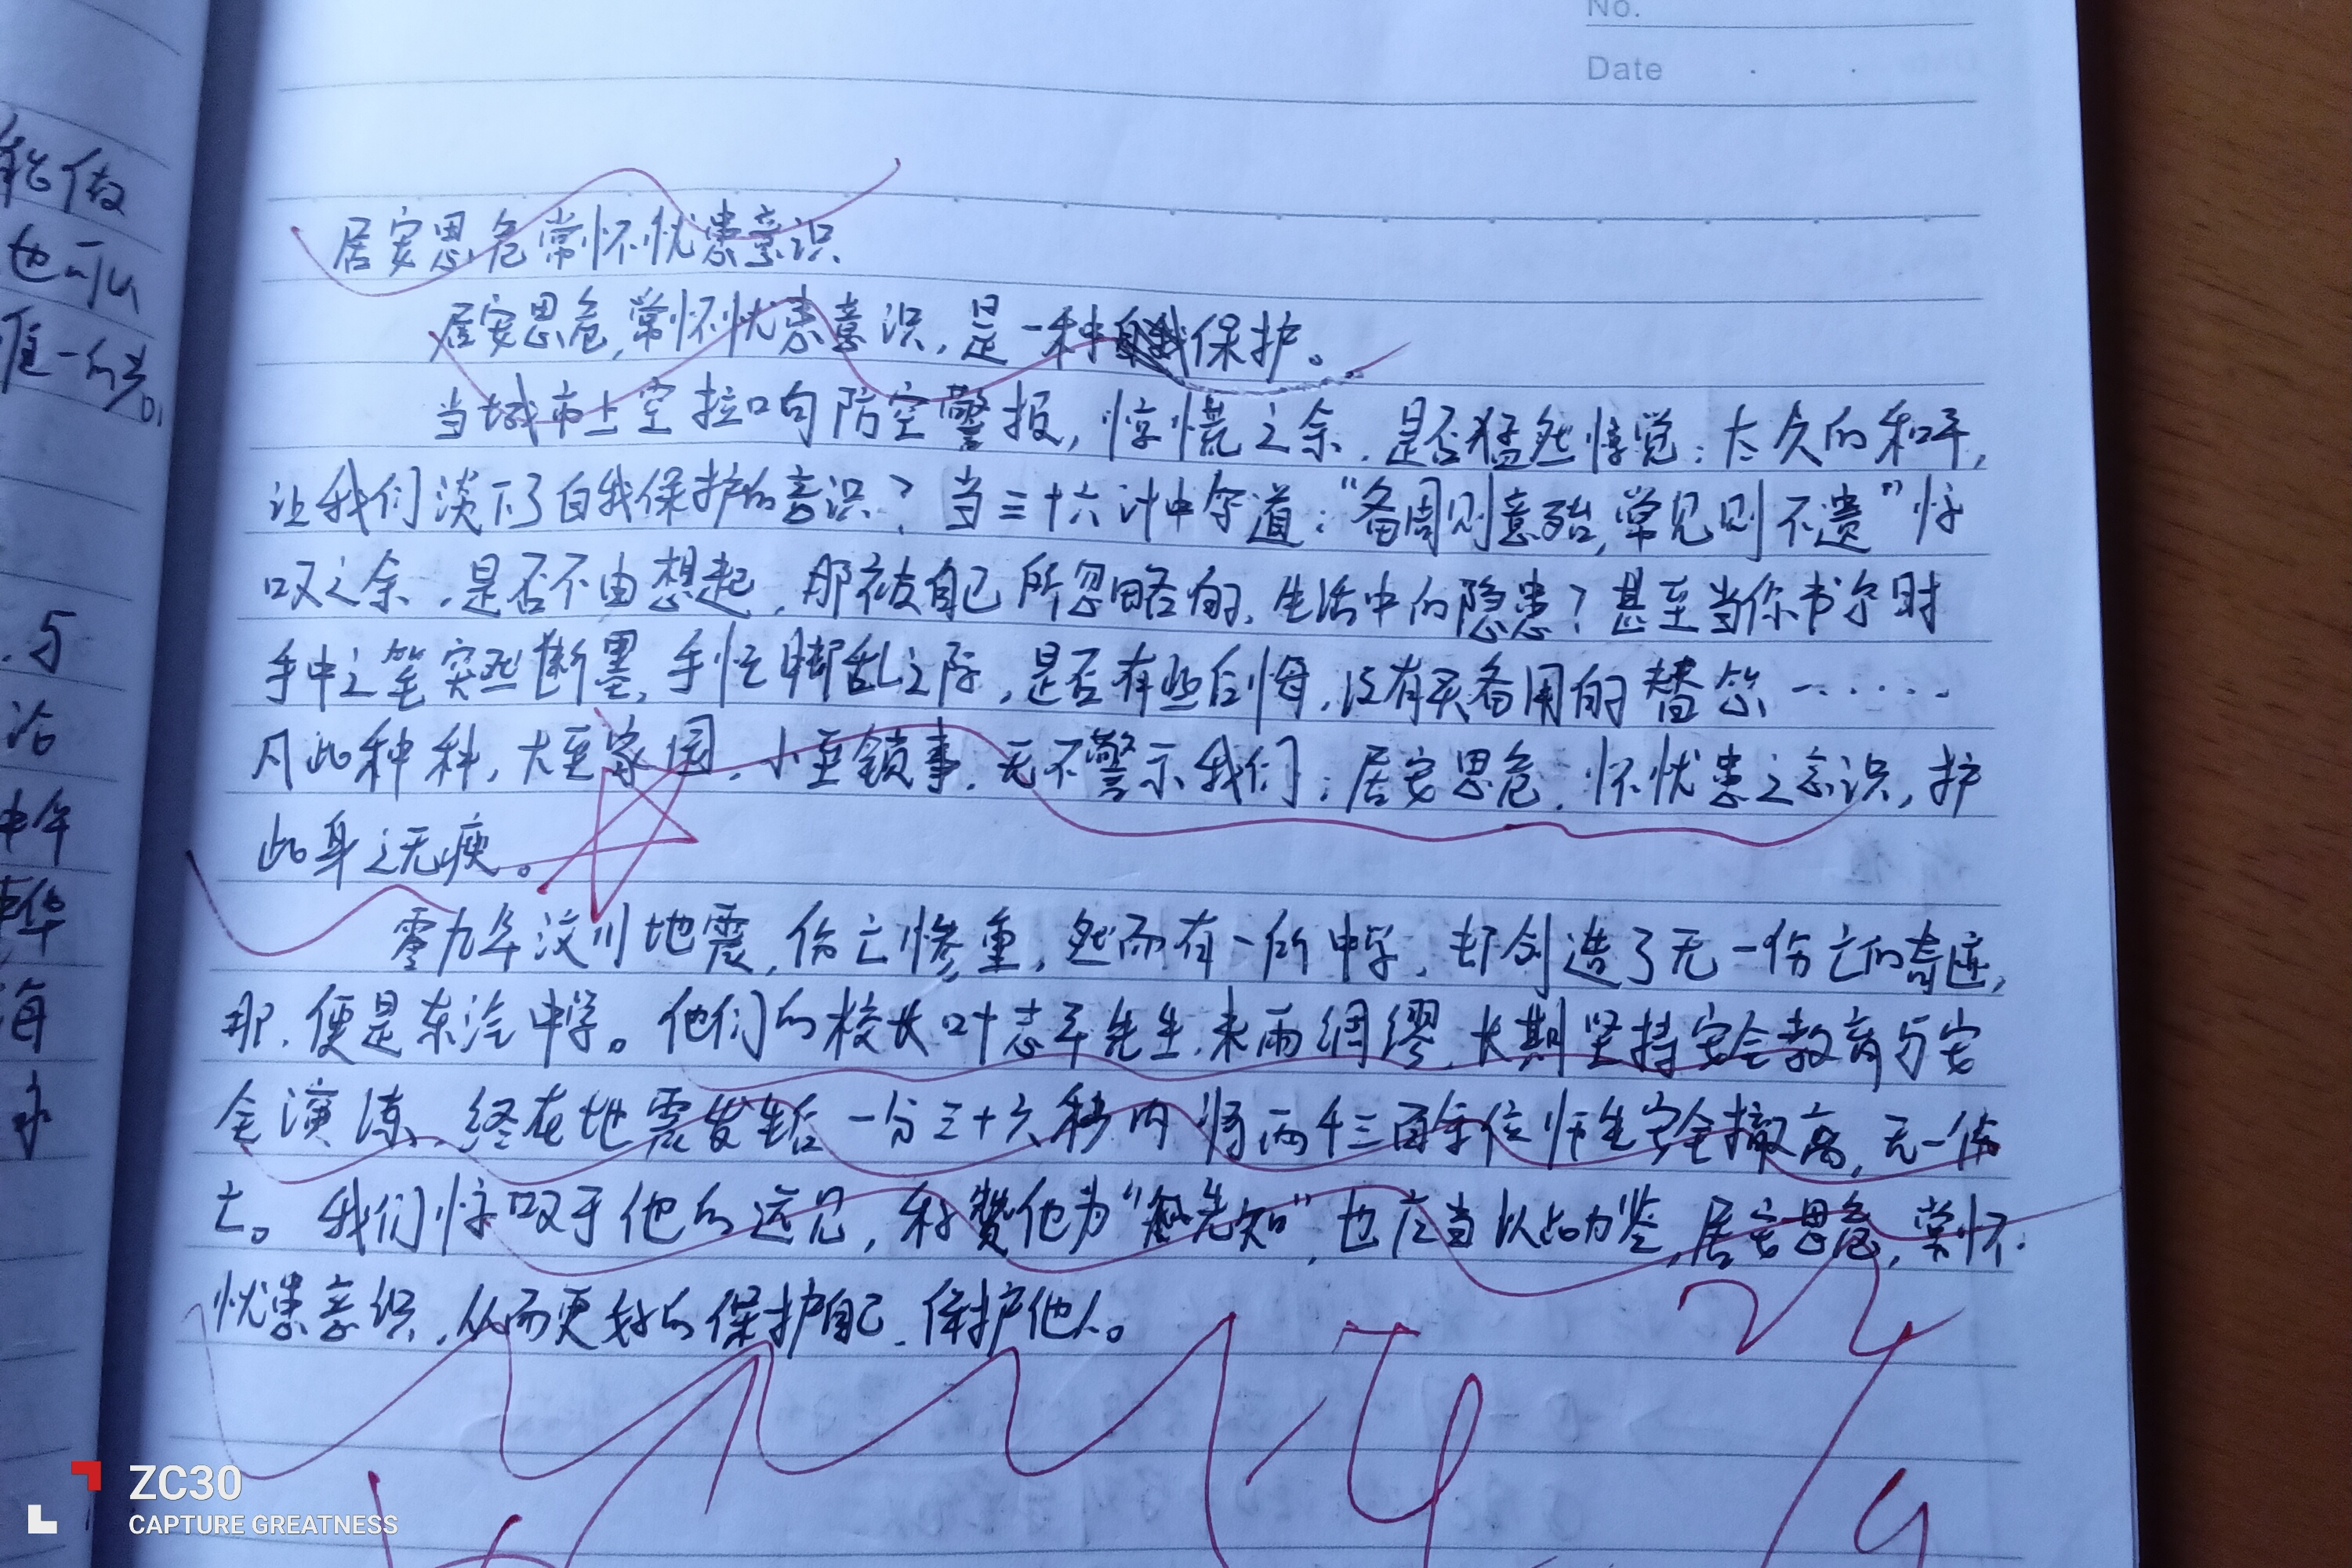 No.
Date
能做
也可以
与
海
居安思危常怀忧患意识
居安思危,常怀忧患意识,是一种保护。
当城市上空拉响防空警报,惊慌之余,是否猛然惊觉:太久的和平,
让我们淡下了自我保护的意识?当三十六计中写道:“备周则意殆,常见则不遗”惊
叹之余,是否不由想起,那被自己所忽略的,生活中的隐患?甚至当你书写时
手中之笔突然断墨,手忙脚乱之际,是否有些后悔,没有买备用的替芯……
凡此种种,大至家国,小至锁事,无不警示我们:居安思危,怀忧患之意识,护
此身之无瘐。
零九年汶川地震,伤亡惨重,然而有一所中学,却创造了无一伤亡的奇迹,
那,便是东汽中学。他们的校长叶志平先生,未雨绸缪,长期坚持安全教育与安
全演练,终在地震发生后一分三十六秒内将两千三百余位师生安全撤离,无一伤
亡。我们惊叹于他的远见,称赞他为“先知”,也应当以此为鉴,居安思危,常怀
忧患意识,从而更好的保护自己,保护他人。
ZC30
CAPTURE GREATNESS